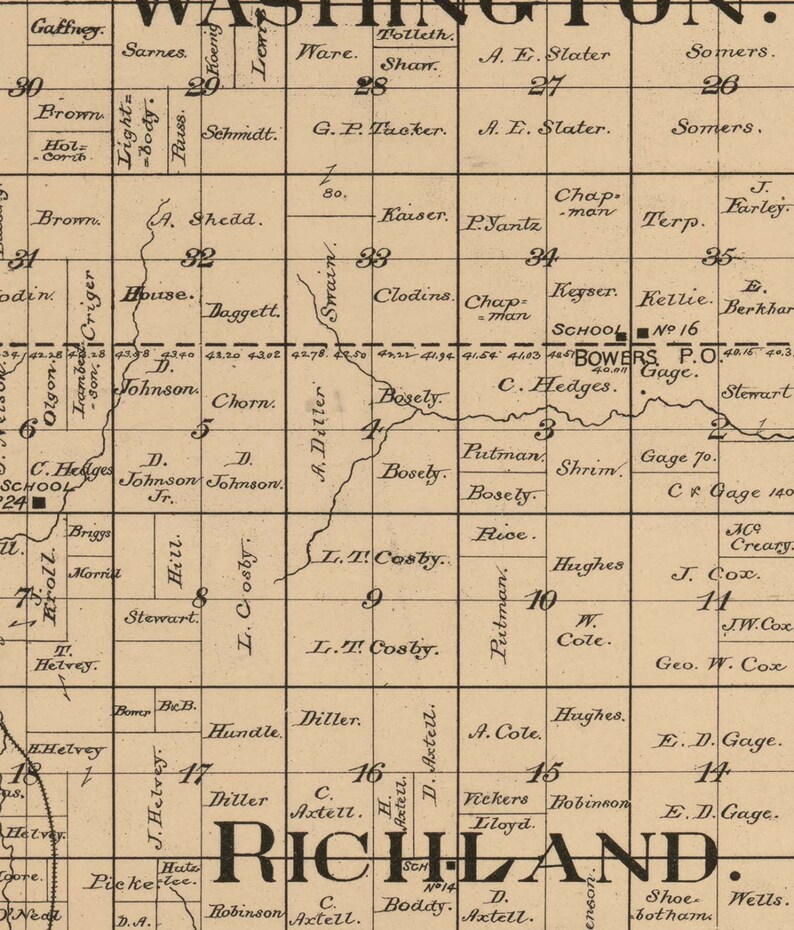 WASHINGTON.
Gaffney.
Sarnes.
Koenig
Lewis
Ware.
Tolleth.
Shaw.
A. E. Slater
Somers.
30
29
28
27
26
Brown.
Hol=
-comb.
Light=
=body.
Russ.
Schmidt.
G. P. Tucker.
A. E. Slater.
Somers.
80.
Brown.
A. Shedd.
Kaiser.
P. Yantz
Chap=
-man
Terp.
J.
Farley.
31
32
33
34
35
Criger
House.
Daggett.
Swain.
Clodins.
Chap=
=man
Keyser.
Kellie.
E.
SCHOOL
Nº 16
42.28
43.58
43.40
43.20
43.02
42.78
42.50
42.22
41.94
41.54
41.03
BOWERS P.O.
40.15
Olgon.
D.
Johnson.
Chorn.
A. Diller
Bosely.
C. Hedges.
Gage.
Stewart
6
5
4
3
2
C. Hedges
SCHOOL
24
D.
Johnson
Jr.
D.
Johnson.
Bosely.
Putman.
Bosely.
Shrim.
Gage 70.
C & Gage 140
J.
Kroll.
Briggs
Morrill
Hill.
L. Cosby.
L. T. Cosby.
Rice.
Hughes
J. Cox.
Mc
Creary.
7
8
9
10
11
Stewart.
L. T. Cosby.
Putman.
W.
Cole.
J.W. Cox
Geo. W. Cox
T.
Helvey.
Bower
B.&B.
Hundle.
Diller.
D. Axtell.
A. Cole.
Hughes.
E. D. Gage.
H. Helvey
18
17
16
15
14
J. Helvey.
Diller
C.
Axtell.
H.
Axtell.
Vickers
Lloyd.
Robinson
E. D. Gage.
Helvey.
RICHLAND.
SCH
Nº 14
Hutz-
lee.
O'Neal
D. A.
Robinson
C.
Axtell.
Boddy.
D.
Axtell.
Shoe-
botham.
Wells.